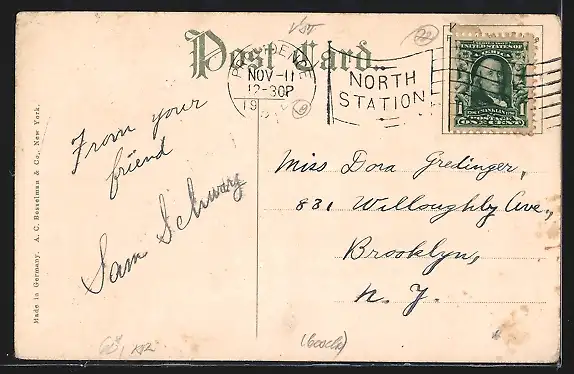 Post Card.
PROVIDENCE
NOV-11
12-30P
19
NORTH
STATION
UNITED STATES OF
AMERICA
FRANKLIN
POSTAGE
1 ONE CENT 1
From your
friend
Sam Schwarz
Miss Dora Gredinger,
831 Willoughby Ave.,
Brooklyn,
N. Y.
Made in Germany. A. C. Bosselman & Co., New York.